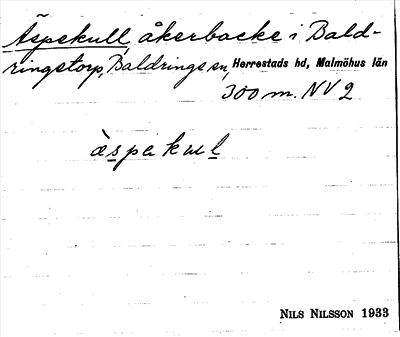 Äspekull, åkerbacke i Bald-
ringstorp, Baldrings sn, Herrestads hd, Malmöhus län
300 m. NV 2
äspekul
NILS NILSSON 1933